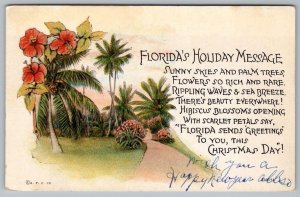 FLORIDA'S HOLIDAY MESSAGE
SUNNY SKIES AND PALM TREES,
FLOWERS SO RICH AND RARE,
RIPPLING WAVES & SEA BREEZE
THERE'S BEAUTY EVERYWHERE!
HIBISCUS BLOSSOMS OPENING
WITH SCARLET PETALS SAY,
"FLORIDA SENDS GREETINGS
TO YOU, THIS
CHRISTMAS DAY!"
Wish you a
Happy